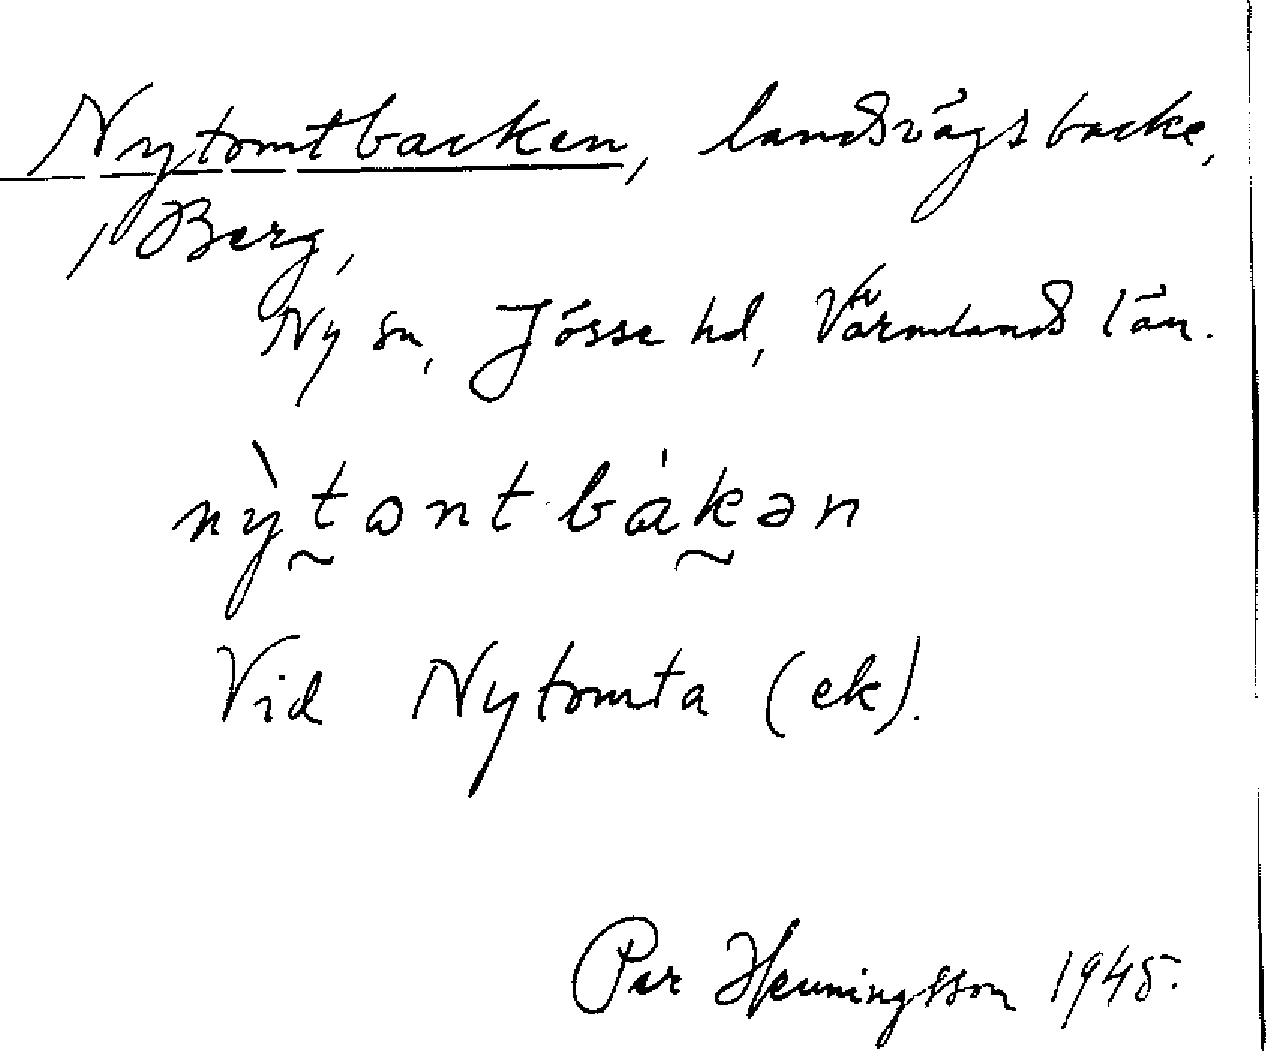 Nytomtbacken, landsvägsbacke,
i Berg,
Ny sn, Jösse hd, Värmlands län.
nỳtɷntbákən
Vid Nytomta (ek).
Per Henningsson 1945.